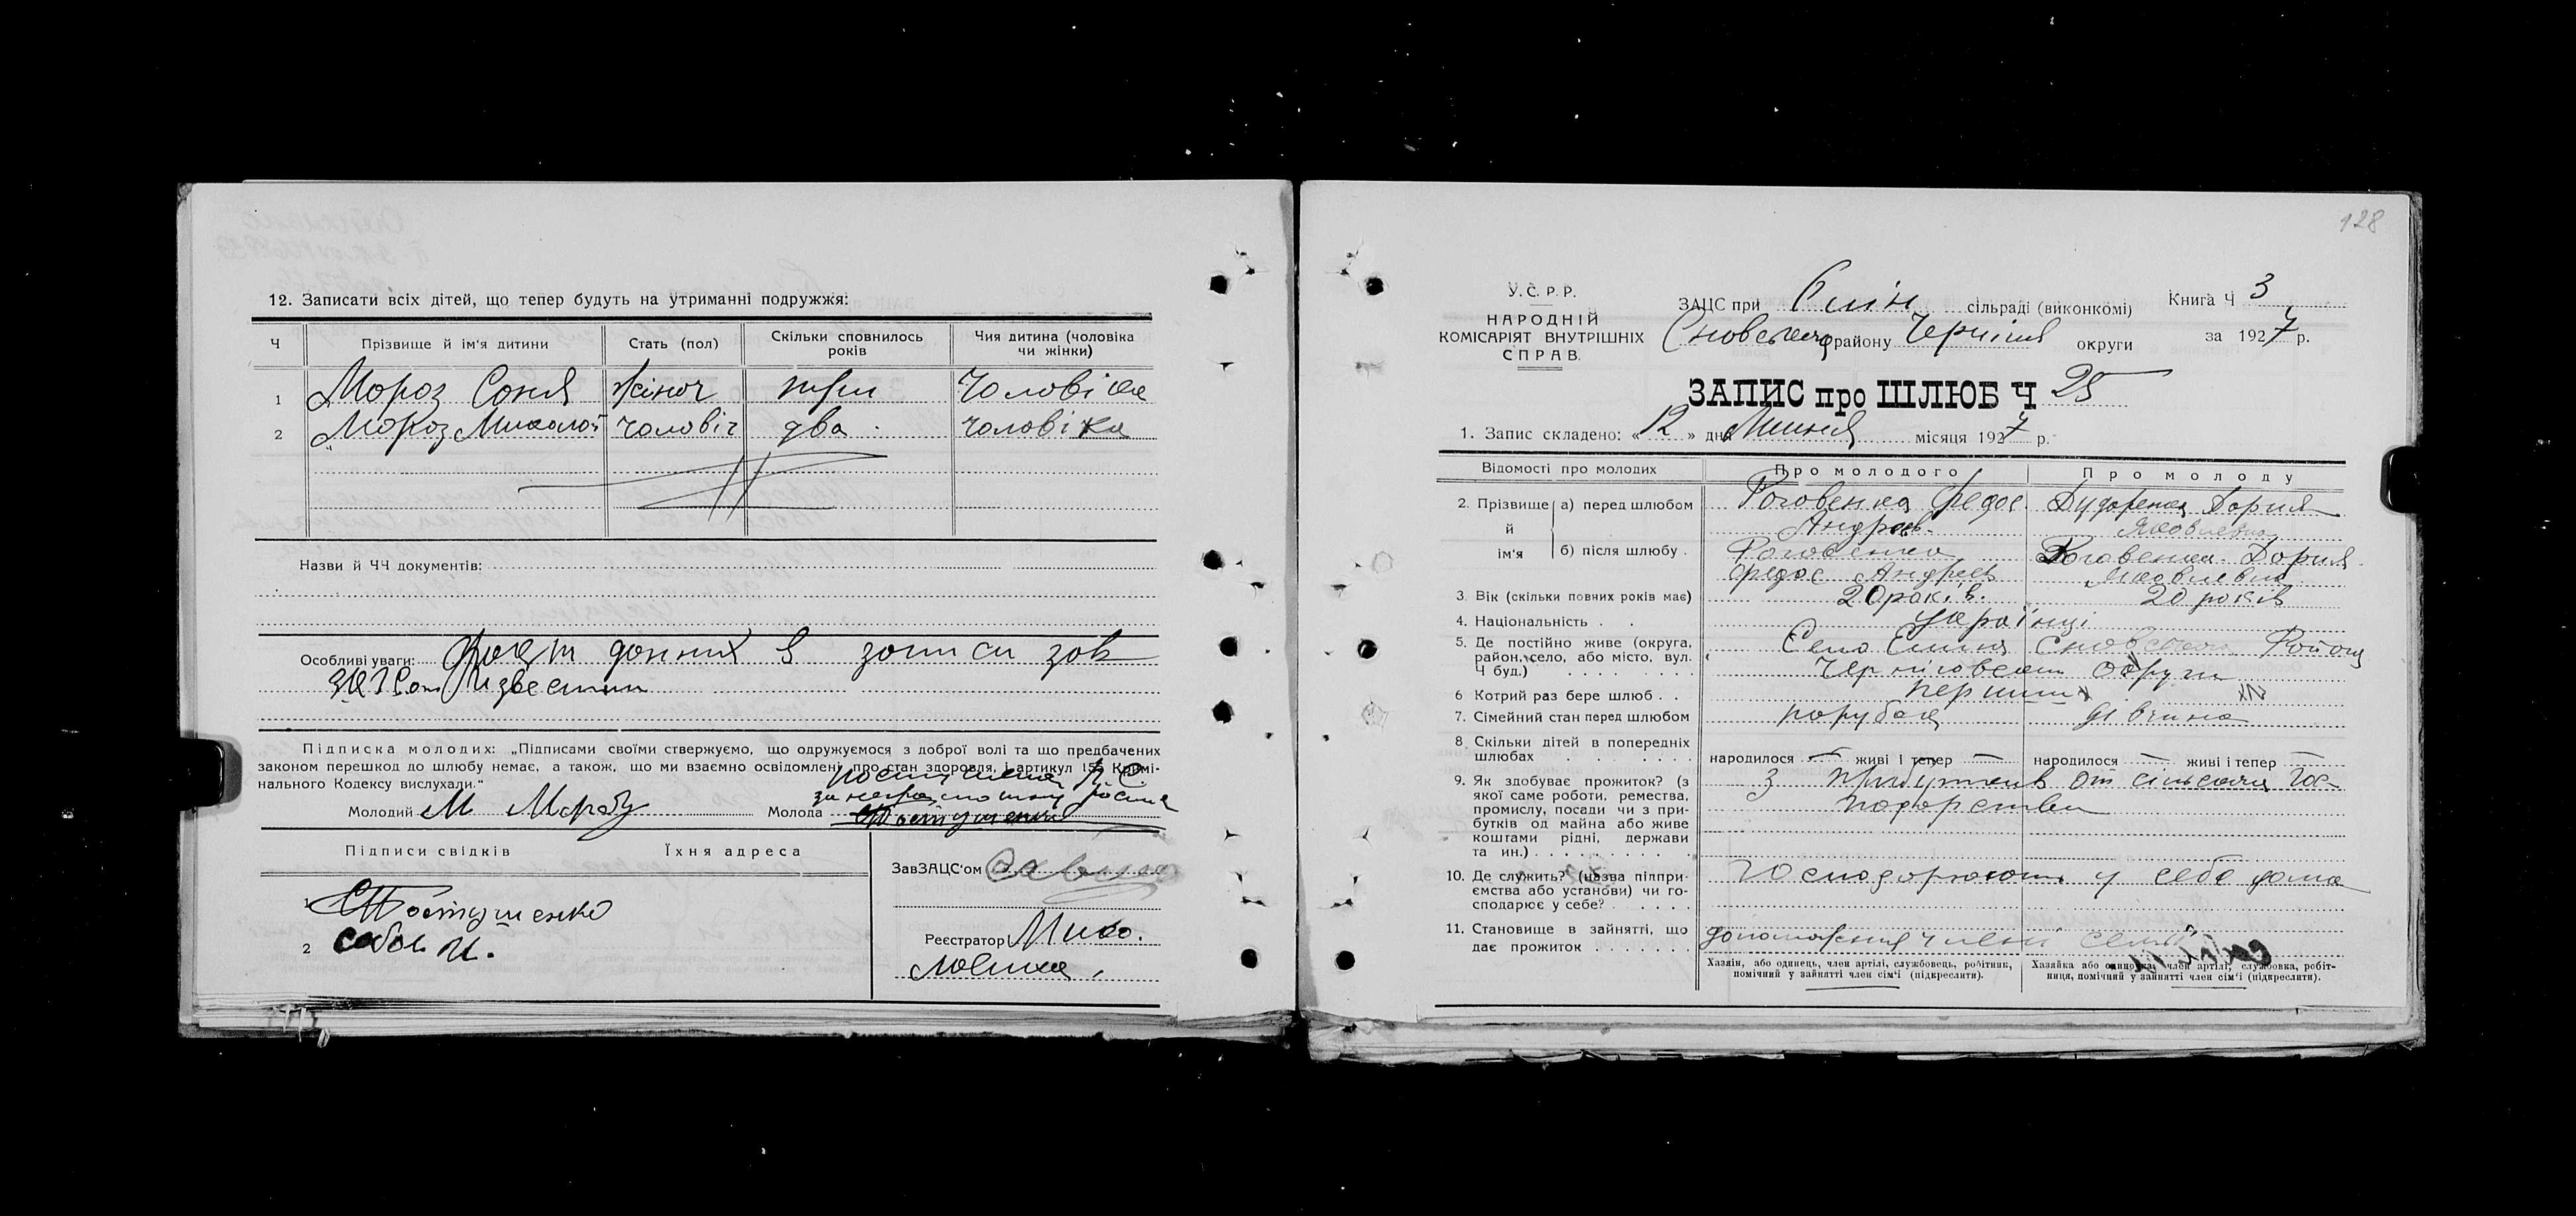 12. Записати всіх дітей, що тепер будуть на утриманні подружжя:
Ч Прізвище й ім'я дитини Стать (пол) Скільки сповнилось років Чия дитина (чоловіка чи жінки)
1 Мороз Соня жіноч три Чоловіка
2 Мороз Миколоі чоловіч два. чоловіка
Назви й ЧЧ документів:
Особливі уваги: Факт донних в записи зов
ЗАГСом Известни
Підписка молодих: „Підписами своїми стверджуємо, що одружуємося з доброї волі та що предбачених
законом перешкод до шлюбу немає, а також, що ми взаємно освідомлені про стан здоровля, і артикул 155 Кримі-
нального Кодексу вислухали."
за неграмотну
Молодий М Мороз Молода
Підписи свідків Їхня адреса
ЗавЗАЦС'ом
1
2 Сабол И.
Реєстратор Михо.
128
У.С.Р.Р.
НАРОДНІЙ
КОМІСАРІЯТ ВНУТРІШНІХ
СПРАВ.
ЗАЦС при Єлін сільраді (виконкомі) Книга Ч 3
Сновського району Черніга округи за 1927 р.
ЗАПИС про ШЛЮБ Ч 25
1. Запис складено: « 12 » дня місяця 1927 р.
Відомості про молодих Про молодого Про молоду
2. Прізвище й ім'я а) перед шлюбом Роговенка Федос Андреев. Дударенка Дория Яковлевна
б) після шлюбу. Роговенко Федос Андреев Роговенка Дория Яковлевна
3. Вік (скільки повних років має) 20 років. 20 років
4. Національність . . україінці
5. Де постійно живе (округа, район, село, або місто, вул. Ч буд.) Село Єлина Сновського Району
Черніговскои округи
6 Котрий раз бере шлюб . . перший
7. Сімейний стан перед шлюбом порубок дівчина
8. Скільки дітей в попередніх шлюбах народилося — живі і тепер — народилося — живі і тепер —
9. Як здобуває прожиток? (з якої саме роботи, ремества, промислу, посади чи з прибутків од майна або живе коштами рідні, держави та ин.) З прибутков от сильского гос
подорства
10. Де служить? (назва підпри-ємства або установи) чи го-сподарює у себе? Господорюють у себе дома
11. Становище в зайнятті, що дає прожиток допоможния члени семї
Хазяїн, або одинець, член артілі, службовець, робітник, помічний у зайнятті член сім'ї (підкреслити).
Хазяйка або одиночка, член артілі, службовка, робіт-ниця, помічний у зайнятті член сім'ї (підкреслити).